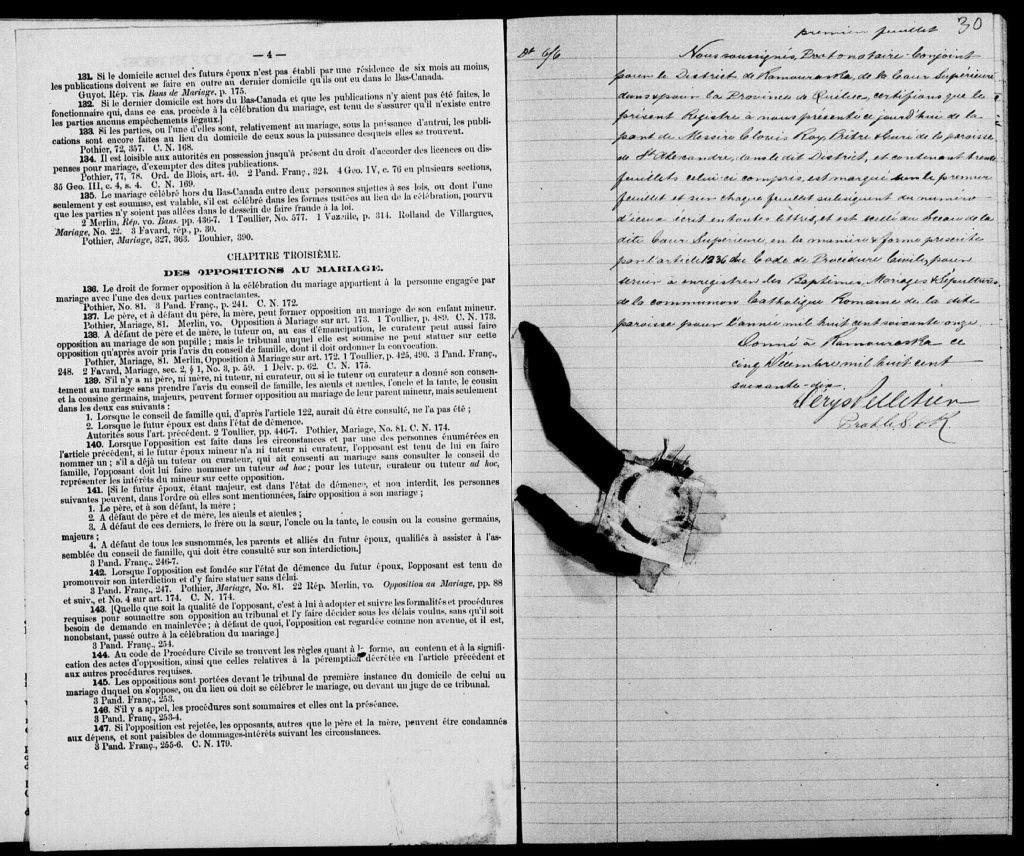 — 4 —
131. Si le domicile actuel des futurs époux n'est pas établi par une résidence de six mois au moins,
les publications doivent se faire en outre au dernier domicile qu'ils ont eu dans le Bas-Canada.
Guyot, Rép. vis. Bans de Mariage, p. 175.
132. Si le dernier domicile est hors du Bas-Canada et que les publications n'y aient pas été faites, le
fonctionnaire qui, dans ce cas, procède à la célébration du mariage, est tenu de s'assurer qu'il n'existe entre
les parties aucuns empêchements légaux.]
133. Si les parties, ou l'une d'elles sont, relativement au mariage, sous la puissance d'autrui, les publi-
cations sont encore faites au lieu du domicile de ceux sous la puissance desquels elles se trouvent.
Pothier, 72, 357. C. N. 168.
134. Il est loisible aux autorités en possession jusqu'à présent du droit d'accorder des licences ou dis-
penses pour mariage, d'exempter des dites publications.
Pothier, 77, 78. Ord. de Blois, art. 40. 2 Pand. Franç., 324. 4 Geo. IV, c. 76 en plusieurs sections,
35 Geo. III, c. 4, s. 4. C. N. 169.
135. Le mariage célébré hors du Bas-Canada entre deux personnes sujettes à ses lois, ou dont l'une
seulement y est soumise, est valable, s'il est célébré dans les formes usitées au lieu de la célébration, pourvu
que les parties n'y soient pas allées dans le dessein de faire fraude à la loi.
2 Merlin, Rép. vo. Bans, pp. 436-7. 1 Toullier, No. 577. 1 Vazeille, p. 314. Rolland de Villargues,
Mariage, No. 22. 3 Favard, rép., p. 30.
Pothier, Mariage, 327, 363. Bouhier, 390.
CHAPITRE TROISIÈME.
DES OPPOSITIONS AU MARIAGE.
136. Le droit de former opposition à la célébration du mariage appartient à la personne engagée par
mariage avec l'une des deux parties contractantes.
Pothier, No. 81. 3 Pand. Franç., p. 241. C. N. 172.
137. Le père, et à défaut du père, la mère, peut former opposition au mariage de son enfant mineur.
Pothier, Mariage, 81. Merlin, vo. Opposition à Mariage sur art. 173. 1 Toullier, p. 489. C. N. 173.
138. A défaut de père et de mère, le tuteur ou, au cas d'émancipation, le curateur peut aussi faire
opposition au mariage de son pupille; mais le tribunal auquel elle est soumise ne peut statuer sur cette
opposition qu'après avoir pris l'avis du conseil de famille, dont il doit ordonner la convocation.
Pothier, Mariage, 81. Merlin, Opposition à Mariage sur art. 172. 1 Toullier, p. 425, 490. 3 Pand. Franç.,
248. 2 Favard, Mariage, sec. 2, § 1, No. 3, p. 59. 1 Delv. p. 62. C. N. 175.
139. S'il n'y a ni père, ni mère, ni tuteur, ni curateur, ou si le tuteur ou curateur a donné son consen-
tement au mariage sans prendre l'avis du conseil de famille, les aïeuls et aïeules, l'oncle et la tante, le cousin
et la cousine germains, majeurs, peuvent former opposition au mariage de leur parent mineur, mais seulement
dans les deux cas suivants :
1. Lorsque le conseil de famille qui, d'après l'article 122, aurait dû être consulté, ne l'a pas été ;
2. Lorsque le futur époux est dans l'état de démence.
Autorités sous l'art. précédent. 2 Toullier, pp. 446-7. Pothier, Mariage, No. 81. C. N. 174.
140. Lorsque l'opposition est faite dans les circonstances et par une des personnes énumérées en
l'article précédent, si le futur époux mineur n'a ni tuteur ni curateur, l'opposant est tenu de lui en faire
nommer un ; s'il a déjà un tuteur ou curateur, qui ait consenti au mariage sans consulter le conseil de
famille, l'opposant doit lui faire nommer un tuteur ad hoc ; pour les tuteur, curateur ou tuteur ad hoc,
représenter les intérêts du mineur sur cette opposition.
141. [Si le futur époux, étant majeur, est dans l'état de démence, et non interdit, les personnes
suivantes peuvent, dans l'ordre où elles sont mentionnées, faire opposition à son mariage ;
1. Le père, et à son défaut, la mère ;
2. A défaut de père et de mère, les aïeuls et aïeules ;
3. A défaut de ces derniers, le frère ou la sœur, l'oncle ou la tante, le cousin ou la cousine germains,
majeurs ;
4. A défaut de tous les susnommés, les parents et alliés du futur époux, qualifiés à assister à l'as-
semblée du conseil de famille, qui doit être consulté sur son interdiction.]
3 Pand. Franç., 246-7.
142. Lorsque l'opposition est fondée sur l'état de démence du futur époux, l'opposant est tenu de
promouvoir son interdiction et d'y faire statuer sans délai.
3 Pand. Franç., 247. Pothier, Mariage, No. 81. 22 Rép. Merlin, vo. Opposition au Mariage, pp. 88
et suiv., et No. 4 sur art. 174. C. N. 174.
143. [Quelle que soit la qualité de l'opposant, c'est à lui à adopter et suivre les formalités et procédures
requises pour soumettre son opposition au tribunal et l'y faire décider sous les délais voulus, sans qu'il soit
besoin de demande en mainlevée ; à défaut de quoi, l'opposition est regardée comme non avenue, et il est,
nonobstant, passé outre à la célébration du mariage.]
3 Pand. Franç., 254.
144. Au code de Procédure Civile se trouvent les règles quant à la forme, au contenu et à la signifi-
cation des actes d'opposition, ainsi que celles relatives à la péremption décrétée en l'article précédent et
aux autres procédures requises.
145. Les oppositions sont portées devant le tribunal de première instance du domicile de celui au
mariage duquel on s'oppose, ou du lieu où doit se célébrer le mariage, ou devant un juge de ce tribunal.
3 Pand. Franç., 253.
146. S'il y a appel, les procédures sont sommaires et elles ont la préséance.
3 Pand. Franç., 253-4.
147. Si l'opposition est rejetée, les opposants, autres que le père et la mère, peuvent être condamnés
aux dépens, et sont paisibles de dommages-intérêts suivant les circonstances.
3 Pand. Franç., 255-6. C. N. 179.
30
premier feuillet
Nous soussignés, Protonotaire-Conjoint
pour le District de Kamouraska, de la Cour Supérieure
dans & pour la Province de Québec, certifions que le
présent Registre à nous présenté ce jourd'hui de la
part de Messire Clovis Roy, Prêtre & Curé de la paroisse
de St Alexandre, dans le dit District, et contenant trente
feuillets celui-ci compris, est marqué sur le premier
feuillet et sur chaque feuillet subséquent du numéro
d'icieux écrit en toutes lettres, et est scellé du Sceau de la
dite Cour Supérieure, en la manière & forme prescrite
par l'article 1236 du Code de Procédure Civile, pour
servir à enregistrer les Baptêmes, Mariages & Sépultures
de la communion Catholique Romaine de la dite
paroisse pour l'année mil huit cent soixante onze
Donné à Kamouraska ce
cinq Décembre mil huit cent
soixante-dix
Pelletier